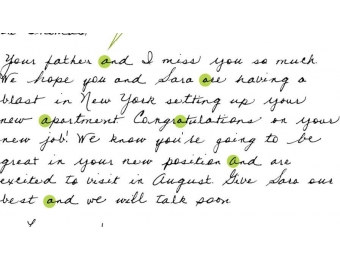 Your father and I miss you so much
We hope you and Sara are having a
blast in New York setting up your
new apartment Congratulations on your
new job! We know you're going to be
great in your new position and are
excited to visit in August. Give Sara our
best and we will talk soon